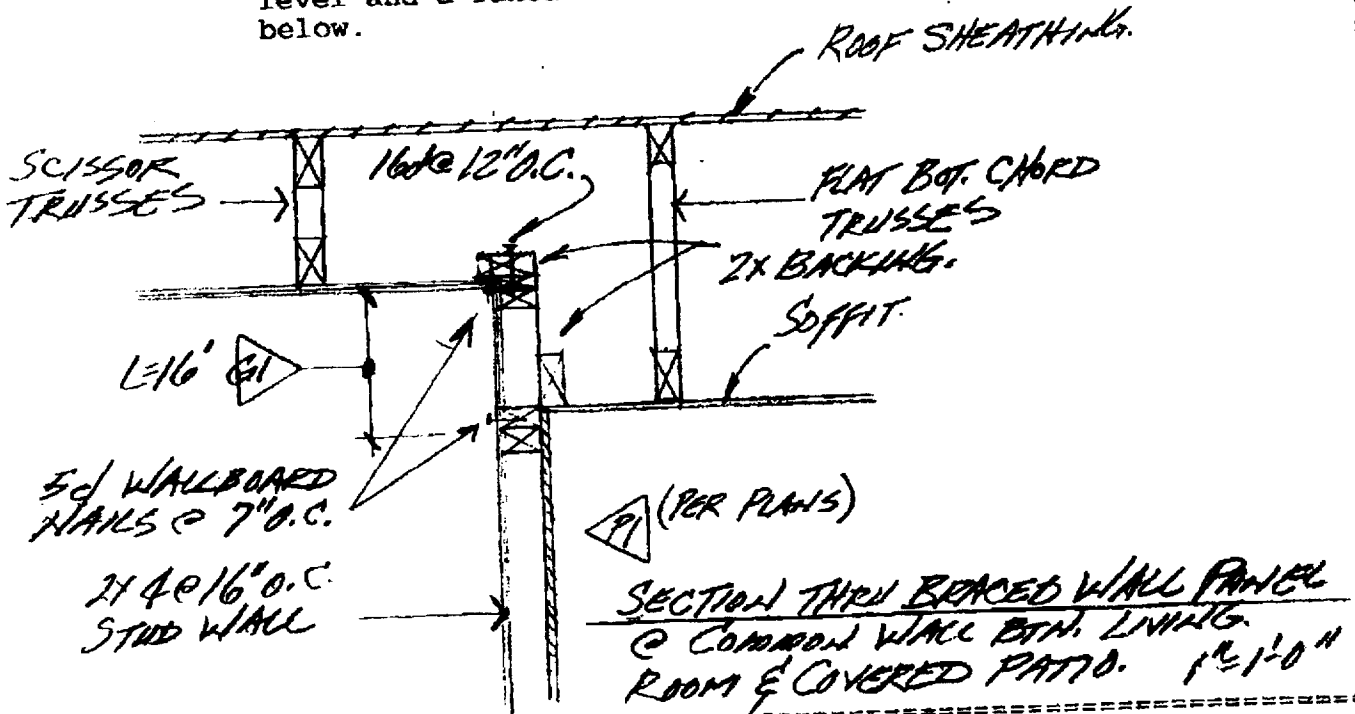 level and a
below.
ROOF SHEATHING.
SCISSOR
TRUSSES
16d@ 12"O.C.
FLAT BOT. CHORD
TRUSSES
2X BACKING.
SOFFIT.
L=16' G1
5d WALLBOARD
NAILS @ 7"O.C.
P1 (PER PLANS)
2X 4@16"O.C.
STUD WALL
SECTION THRU BRACED WALL PANEL
@ COMMON WALL BTN. LIVING
ROOM & COVERED PATIO. 1"=1'-0"